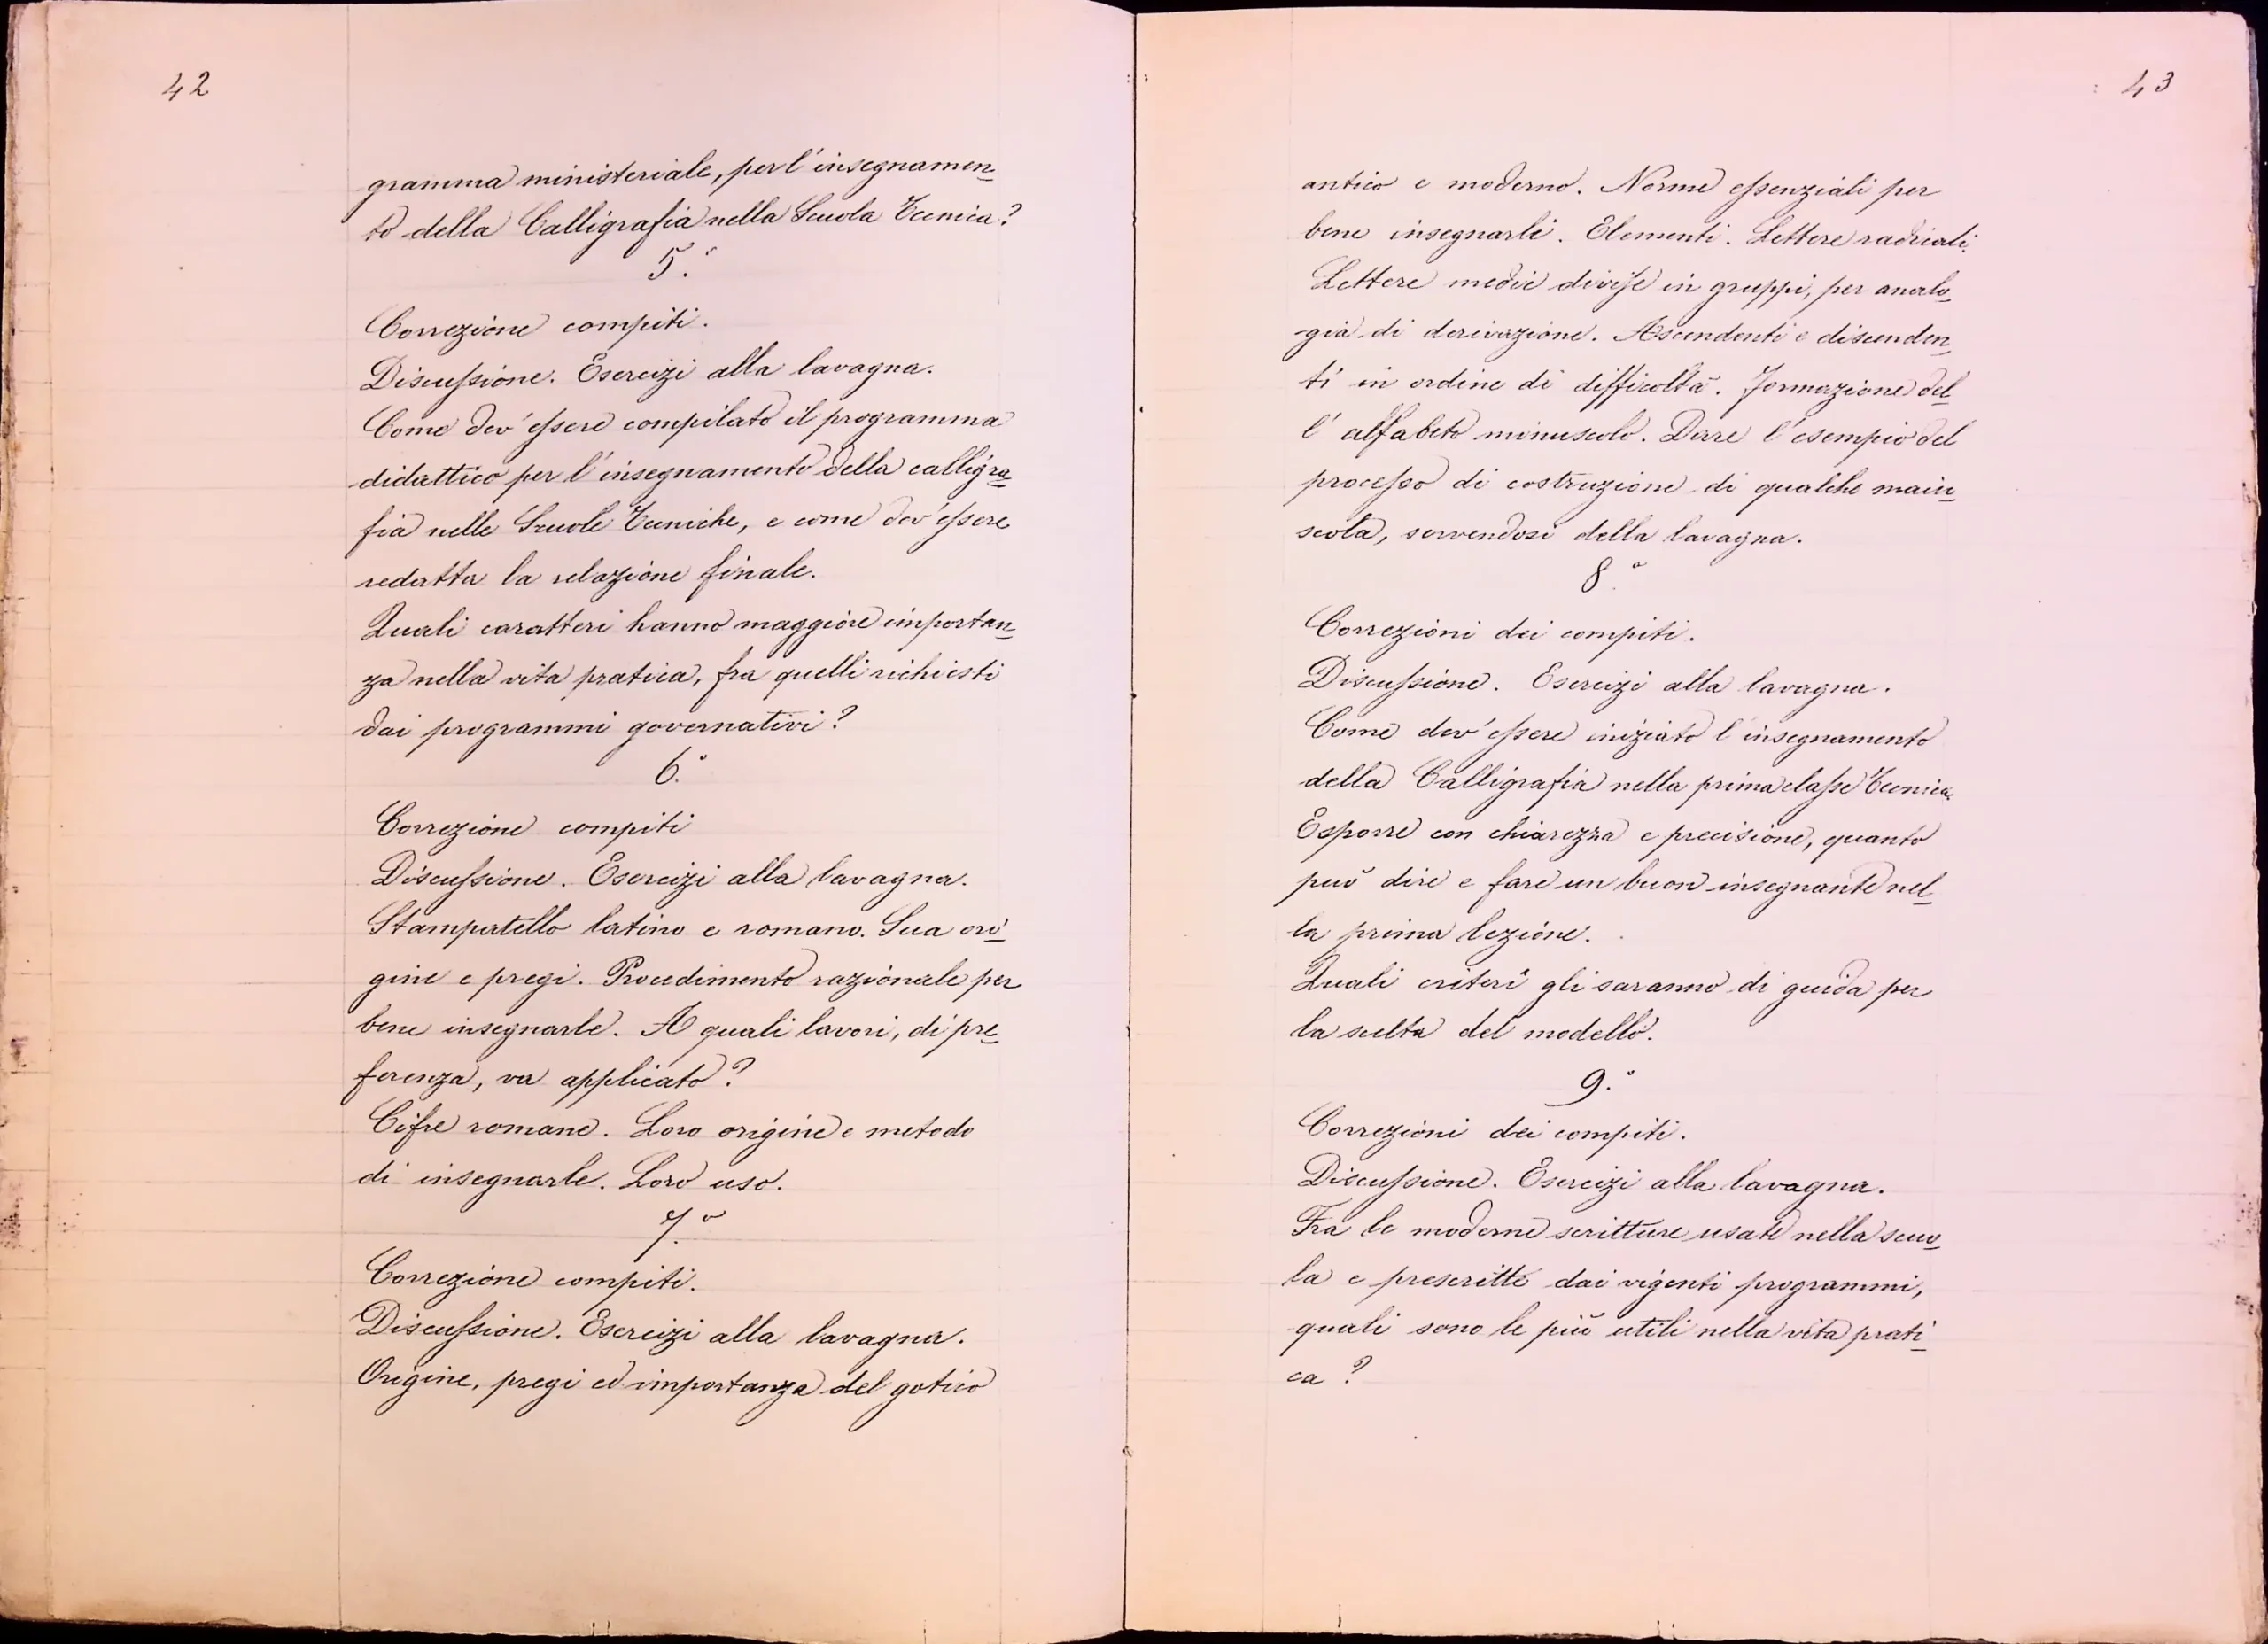 42
gramma ministeriale, per l'insegnamen_
to della Calligrafia nella Scuola Tecnica?
5.°
Correzione compiti.
Discussione. Esercizi alla lavagna.
Come dev'essere compilato il programma
didattico per l'insegnamento della calligra_
fia nelle Scuole Tecniche, e come dev'essere
redatta la relazione finale.
Quali caratteri hanno maggiore importan_
za nella vita pratica, fra quelli richiesti
dai programmi governativi?
6.°
Correzione compiti
Discussione. Esercizi alla lavagna.
Stampatello latino e romano. Sua ori_
gine e pregi. Procedimento razionale per
bene insegnarle. A quali lavori, di pre_
ferenza, va applicato?
Cifre romane. Loro origine e metodo
di insegnarle. Loro uso.
7.°
Correzione compiti.
Discussione. Esercizi alla lavagna.
Origine, pregi ed importanza del gotico
43
antico e moderno. Norme essenziali per
bene insegnarli. Elementi. Lettere radicali.
Lettere medie divise in gruppi, per analo_
gia di derivazione. Ascendenti e discenden_
ti in ordine di difficoltà. Formazione del_
l'alfabeto minuscolo. Dare l'esempio del
processo di costruzione di qualche maiu_
scola, servendosi della lavagna.
8.°
Correzioni dei compiti.
Discussione. Esercizi alla lavagna.
Come dev'essere iniziato l'insegnamento
della Calligrafia nella prima classe Tecnica.
Esporre con chiarezza e precisione, quanto
può dire e fare un buon insegnante nel_
la prima lezione.
Quali criterî gli saranno di guida per
la scelta del modello.
9.°
Correzioni dei compiti.
Discussione. Esercizi alla lavagna.
Fra le moderne scritture usate nella scuo_
la e prescritte dai vigenti programmi,
quali sono le più utili nella vita prati_
ca?